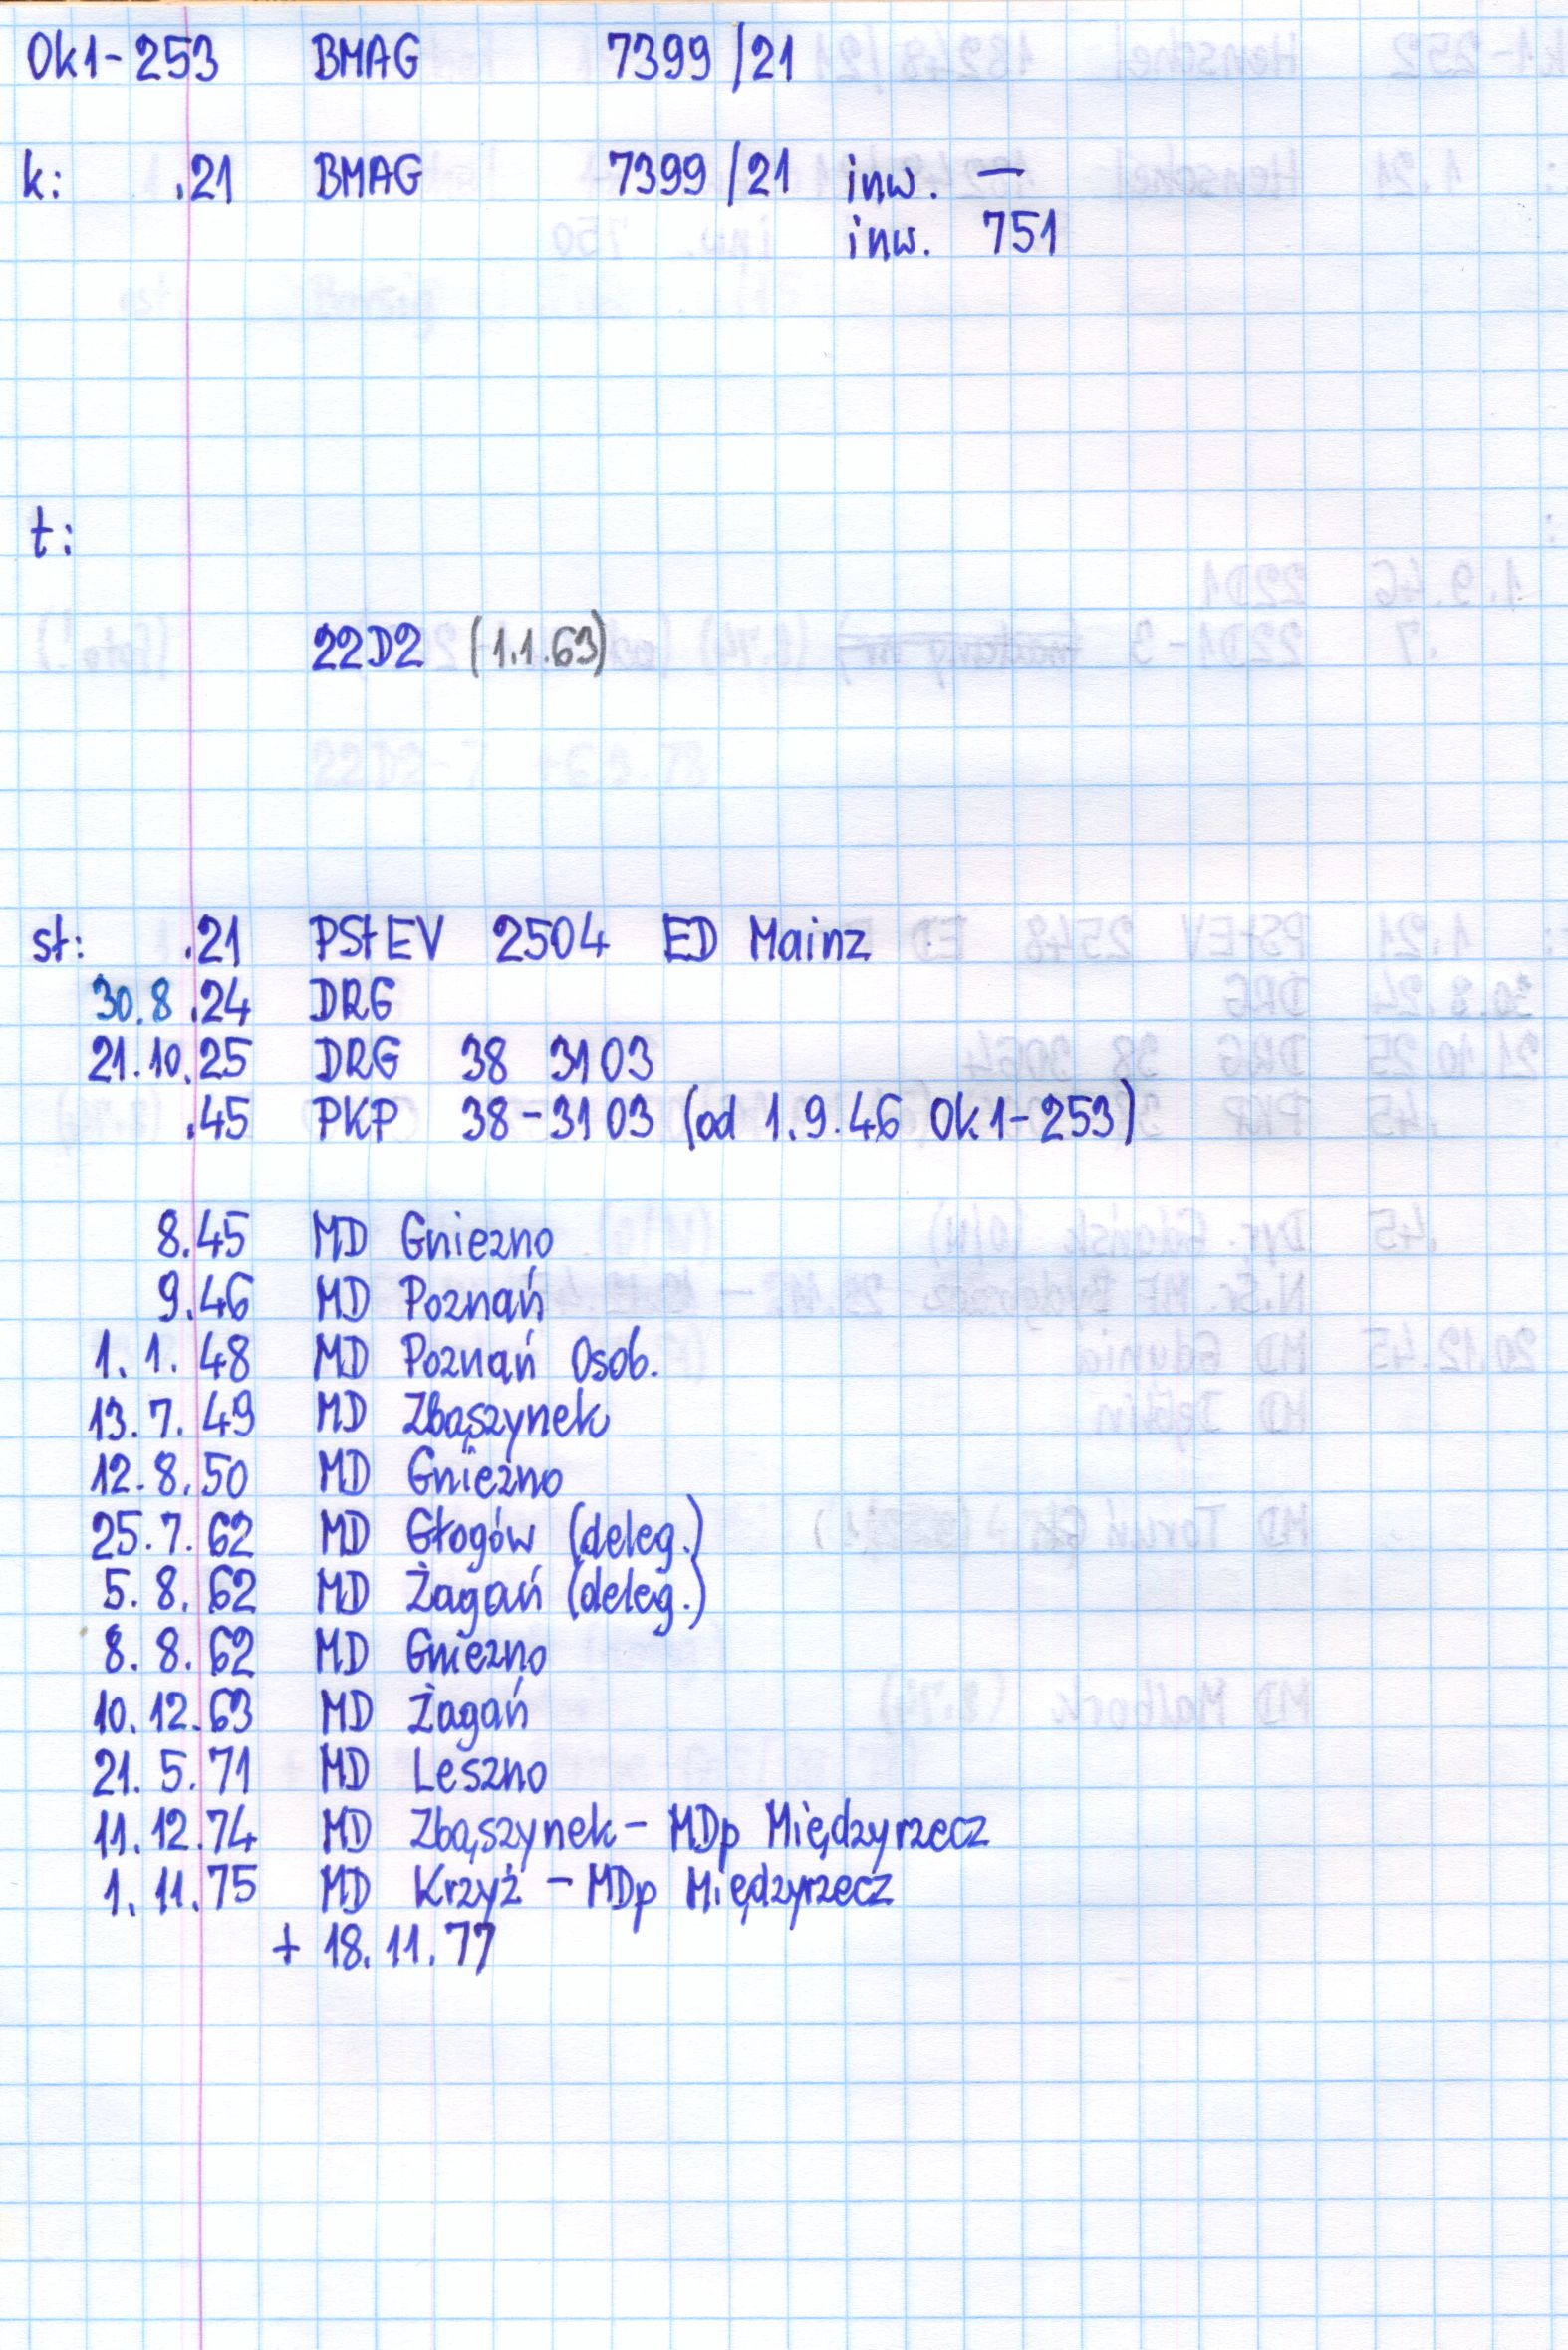 Ok1-253 BMAG 7399/21
k: .21 BMAG 7399/21 inw. —
inw. 751
t:
22D2 (1.1.63)
st: .21 PStEV 2504 ED Mainz
30.8.24 DRG
21.10.25 DRG 38 3103
.45 PKP 38-3103 (od 1.9.46 Ok1-253)
8.45 MD Gniezno
9.46 MD Poznań
1.1.48 MD Poznań Osob.
13.7.49 MD Zbąszynek
12.8.50 MD Gniezno
25.7.62 MD Głogów (deleg.)
5.8.62 MD Żagań (deleg.)
8.8.62 MD Gniezno
10.12.63 MD Żagań
21.5.71 MD Leszno
11.12.74 MD Zbąszynek - MDp Międzyrzecz
1.11.75 MD Krzyż - MDp Międzyrzecz
+ 18.11.77